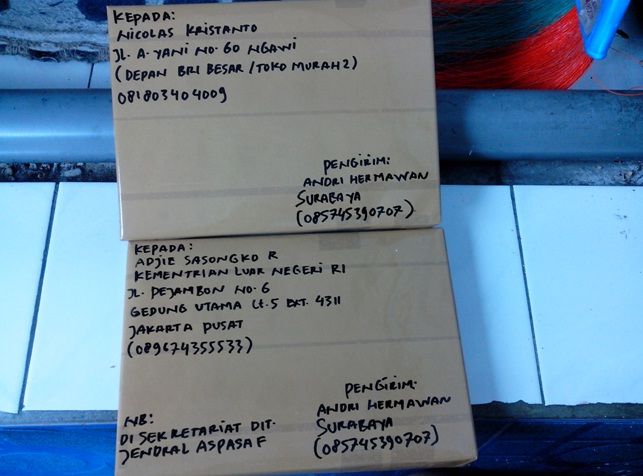 KEPADA:
NICOLAS KRISTANTO
JL. A. YANI NO. 60 NGAWI
(DEPAN BRI BESAR / TOKO MURAH 2)
081803404009
PENGIRIM:
ANDRI HERMAWAN
SURABAYA
(085745390707)
KEPADA:
ADJIE SASONGKO R
KEMENTRIAN LUAR NEGERI RI
JL. PEJAMBON NO. 6
GEDUNG UTAMA Lt. 5 EXT. 4311
JAKARTA PUSAT
(089674355533)
PENGIRIM:
ANDRI HERMAWAN
SURABAYA
(085745390707)
NB:
DI SEKRETARIAT DIT.
JENDRAL ASPASAF